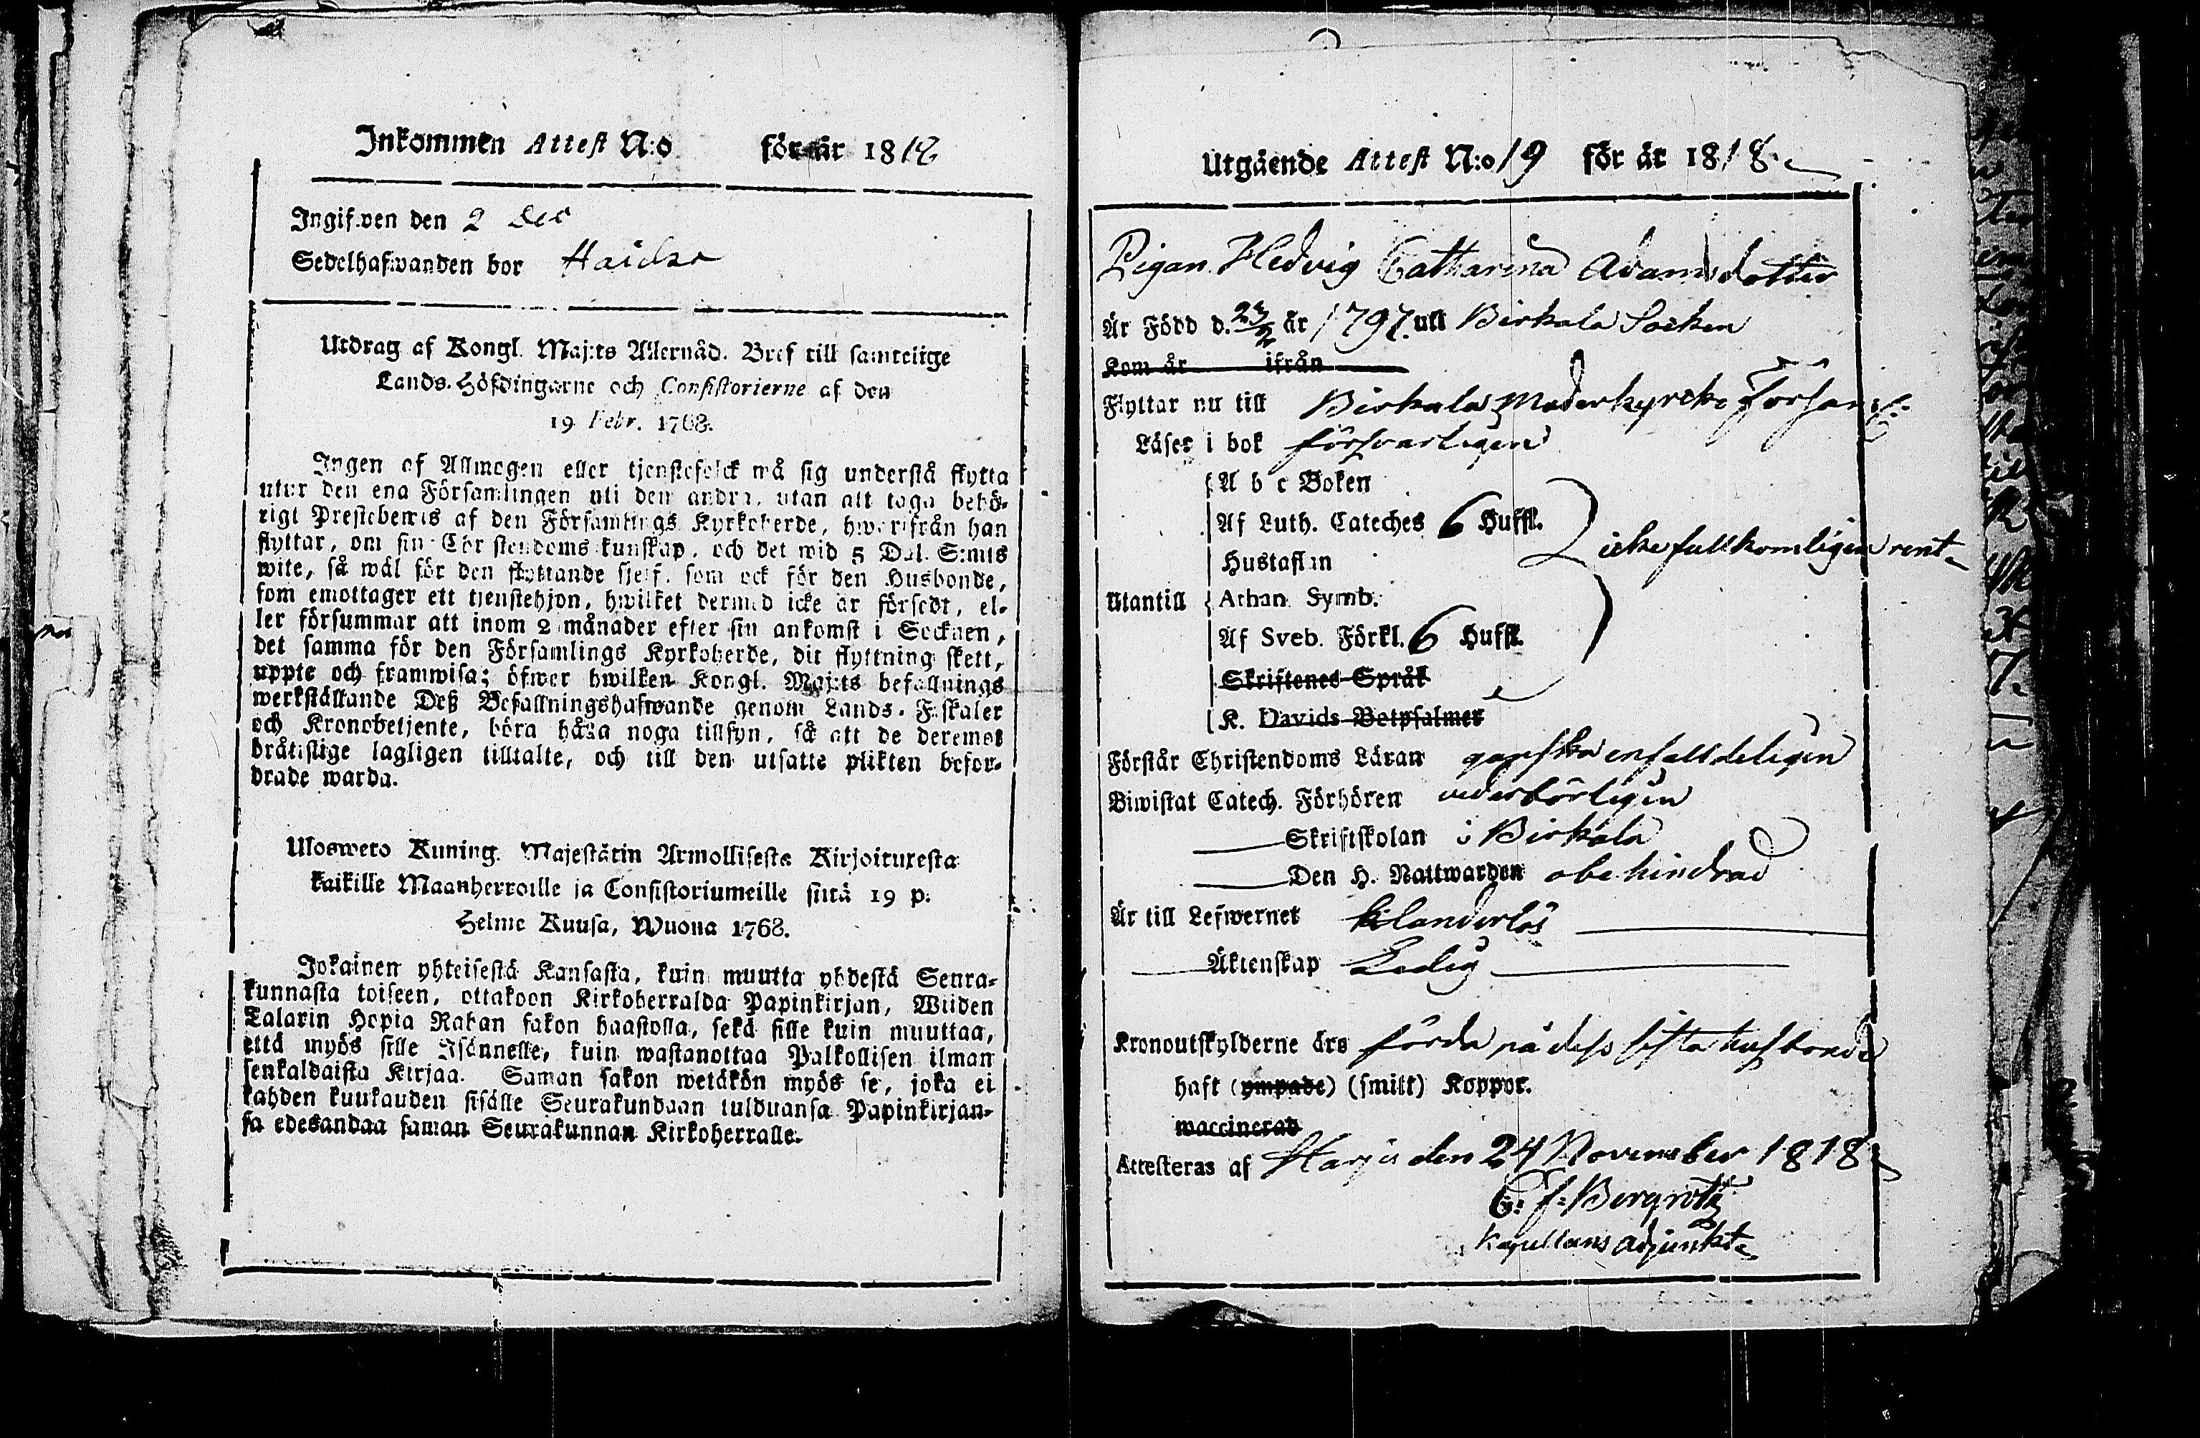 Inkommen Attest N:o för år 1818
Ingifwen den 2 Dec
Sedelhafwanden bor Haidka
Utdrag af Kongl. Maj:ts Allernåd. Bref till samtelige
Lands-Höfdingarne och Consistorierne af den
19 Febr. 1768.
Ingen af Allmogen eller tjenstefolck må sig understå flytta
utur den ena Församlingen uti den andra, utan att taga behö-
rigt Prestebewis af den Församlings Kyrkoherde, hworifrån han
flyttar, om sin Christendoms kunskap, och det wid 5 Dal. S:mts
wite, så wäl för den flyttande sjelf, som ock för den Husbonde,
som emottager ett tjenstehjon, hwilket dermed icke är försedt, el-
ler försummar att inom 2 månader efter sin ankomst i Socknen,
det samma för den Församlings Kyrkoherde, dit flyttning skett,
uppte och framwisa; öfwer hwilken Kongl. Maj:ts befallnings
werkställande Deß Befallningshafwande genom Lands-Fiskaler
och Kronobetjente, böra hålla noga tillsyn, så att de deremot
bråtislige lagligen tilltalte, och till den utsatte plikten befor-
drade warda.
Uloswето Kuning. Majestätin Armollisesta Kirjoituxesta
kaikille Maanherroille ja Consistoriumeille siitä 19 p.
Helme Kuusa, Wuona 1768.
Jokainen yhteisestä Kansasta, kuin muutta yhdestä Seura-
kunnasta toiseen, ottakoon Kirkoherralda Papinkirjan, Wiiden
Talarin Hopia Rahan sakon haastolla, sekä sille kuin muuttaa,
että myös sille Isännelle, kuin wastanottaa Palkollisen ilman
senkaldaista Kirjaa. Saman sakon wetäkön myös se, joka ei
kahden kuukauden sisälle Seurakundaan tulduansa Papinkirjan-
sa edesandaa saman Seurakunnan Kirkoherralle.
Utgående Attest N:o 19 för år 1818.
Pigan Hedvig Catharina Adamsdotter
Är Född d. 23/2 år 1797. uti Birkala Socken
Kom år ifrån
Flyttar nu till Birkala Moderkyrcko Församl:
Läser i bok försvarligen
A b c Boken
Af Luth. Cateches 6 Hufst.
Hustaflan
icke fullkomligen rent
Utantill Athan. Symb.
Af Sveb. Förkl. 6 Hufst.
Skriftenes Språk
K. Davids Botpsalmer
Förstår Christendoms Läran ganska enfalldeligen
Biwistat Catech. Förhören vederbörligen
Skriftskolan i Birkala
Den H. Nattwarden obehindrad
Är till Lefwernet klanderlös
Äktenskap Ledig
Kronoutskylderne äro förda på dess sista husbonde
haft (ympade) (smitt) Koppor.
waccinerad
Attesteras af Harju den 24 November 1818
C: F: Bergroth
Kapellans adjunkt